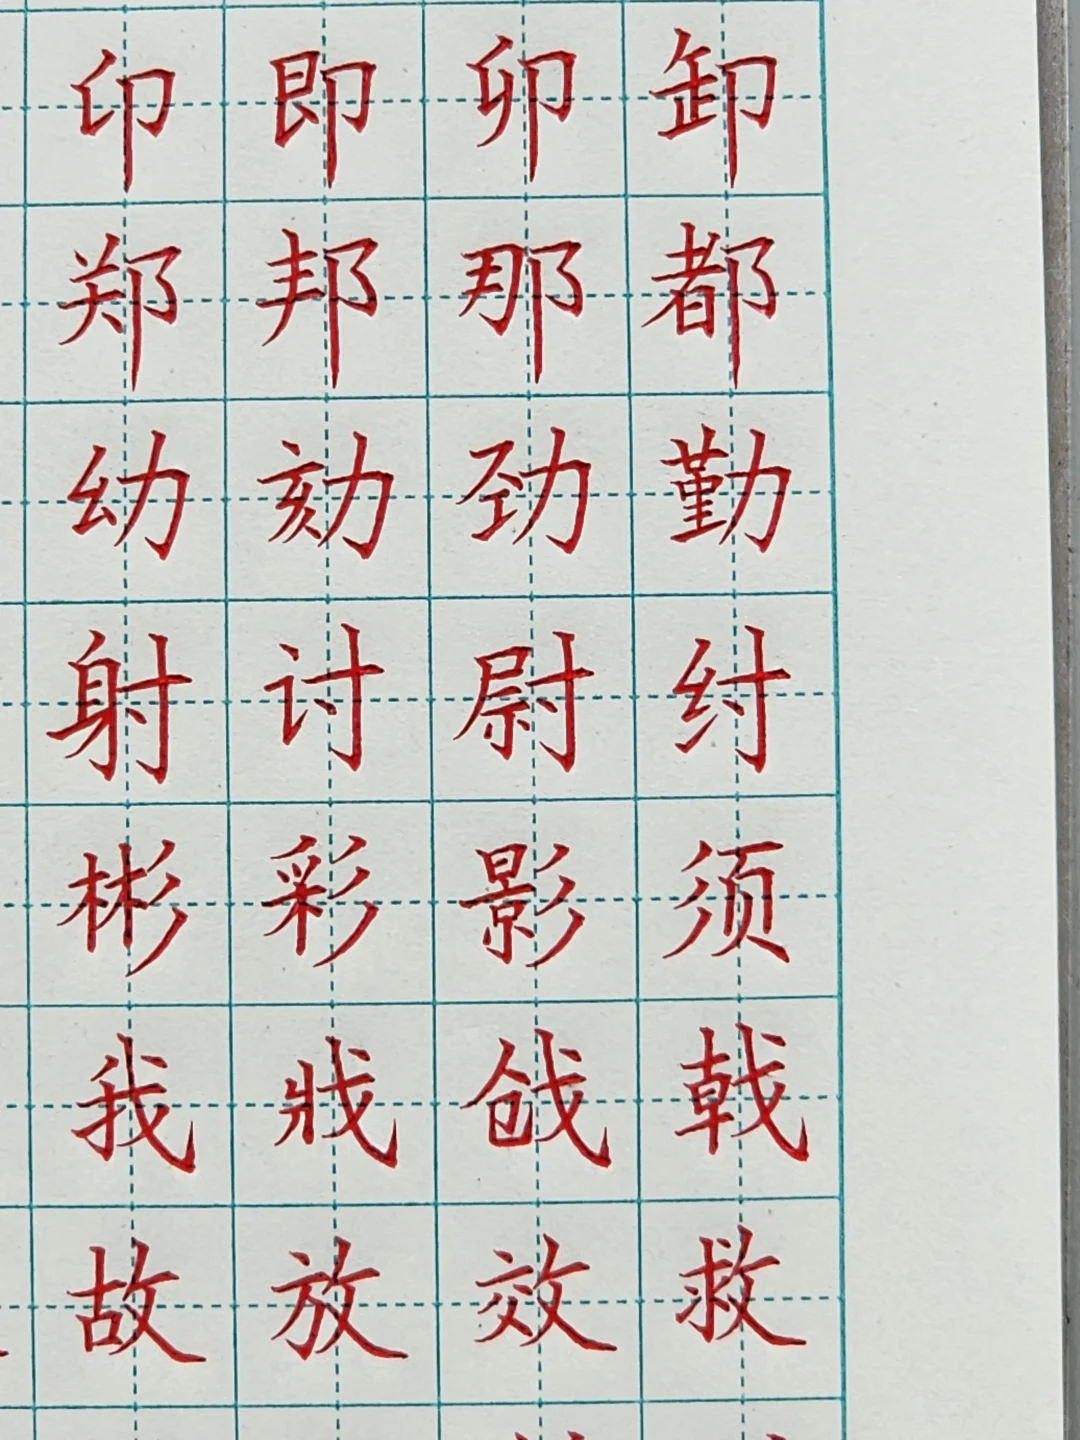 印即卯卸
郑邦那都
幼劾劲勤
射讨尉纣
彬彩影须
我戕戗戟
故放效救